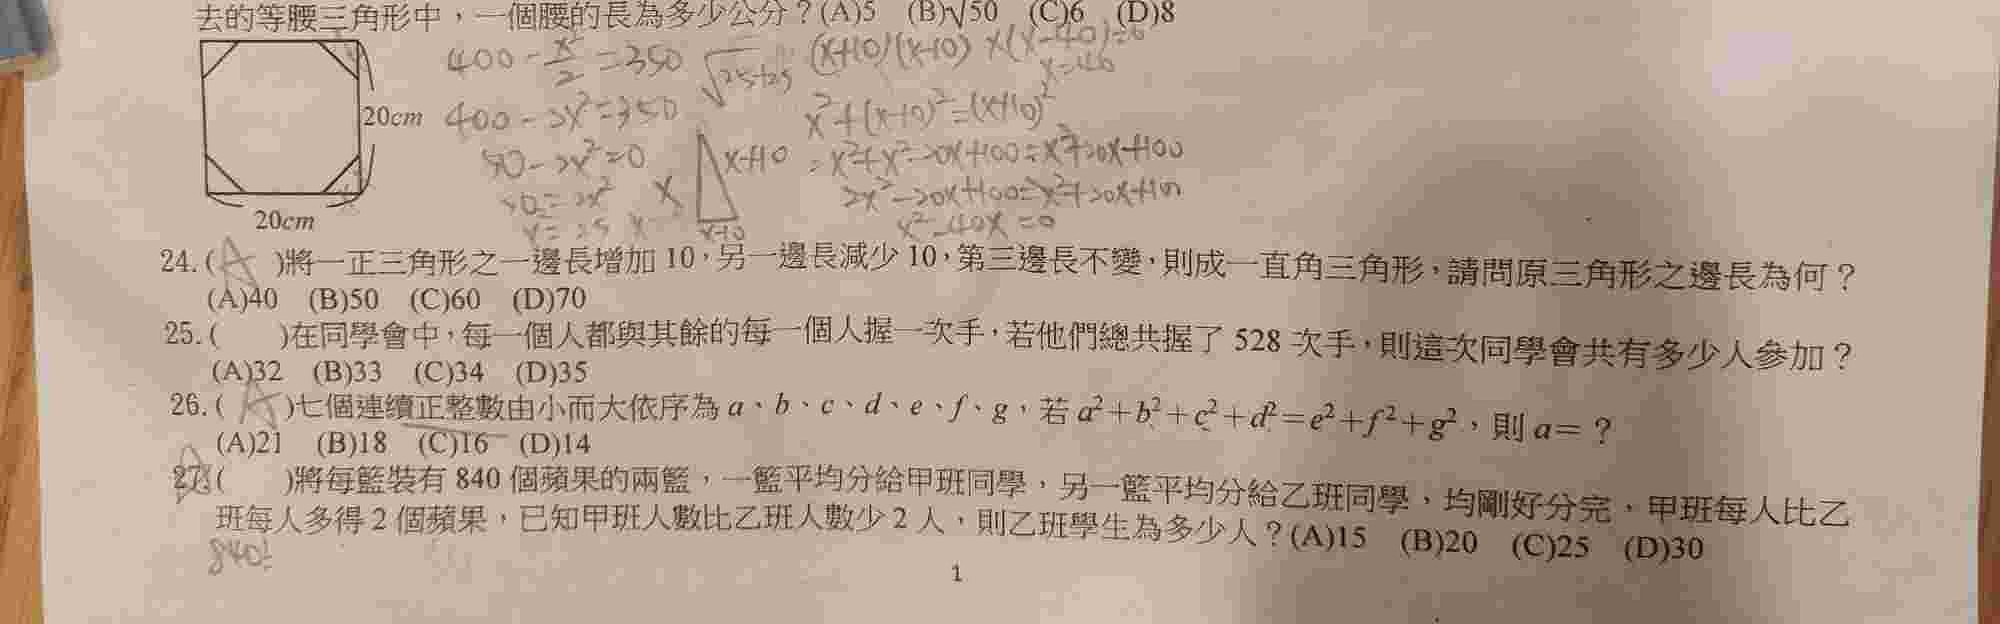 去的等腰三角形中，一個腰的長為多少公分？(A)5 (B)√50 (C)6 (D)8
20cm
20cm
400 - x²/2 = 350
400 - 2x² = 350
50 - 2x² = 0
50 = 2x²
√25+25
x
x+10
x-10
(x+10)(x-10)
x(x-40)=0
x=40
x²+(x-10)²=(x+10)²
=x²+x²-20x+100=x²+20x+100
2x²-20x+100=x²+20x+100
x²-40x=0
24.( A )將一正三角形之一邊長增加 10，另一邊長減少 10，第三邊長不變，則成一直角三角形，請問原三角形之邊長為何？
(A)40 (B)50 (C)60 (D)70
25.( )在同學會中，每一個人都與其餘的每一個人握一次手，若他們總共握了 528 次手，則這次同學會共有多少人參加？
(A)32 (B)33 (C)34 (D)35
26.( A )七個連續正整數由小而大依序為 a、b、c、d、e、f、g，若 a²+b²+c²+d²=e²+f²+g²，則 a=？
(A)21 (B)18 (C)16 (D)14
27.( )將每籃裝有 840 個蘋果的兩籃，一籃平均分給甲班同學，另一籃平均分給乙班同學，均剛好分完，甲班每人比乙
班每人多得 2 個蘋果，已知甲班人數比乙班人數少 2 人，則乙班學生為多少人？(A)15 (B)20 (C)25 (D)30
840
1